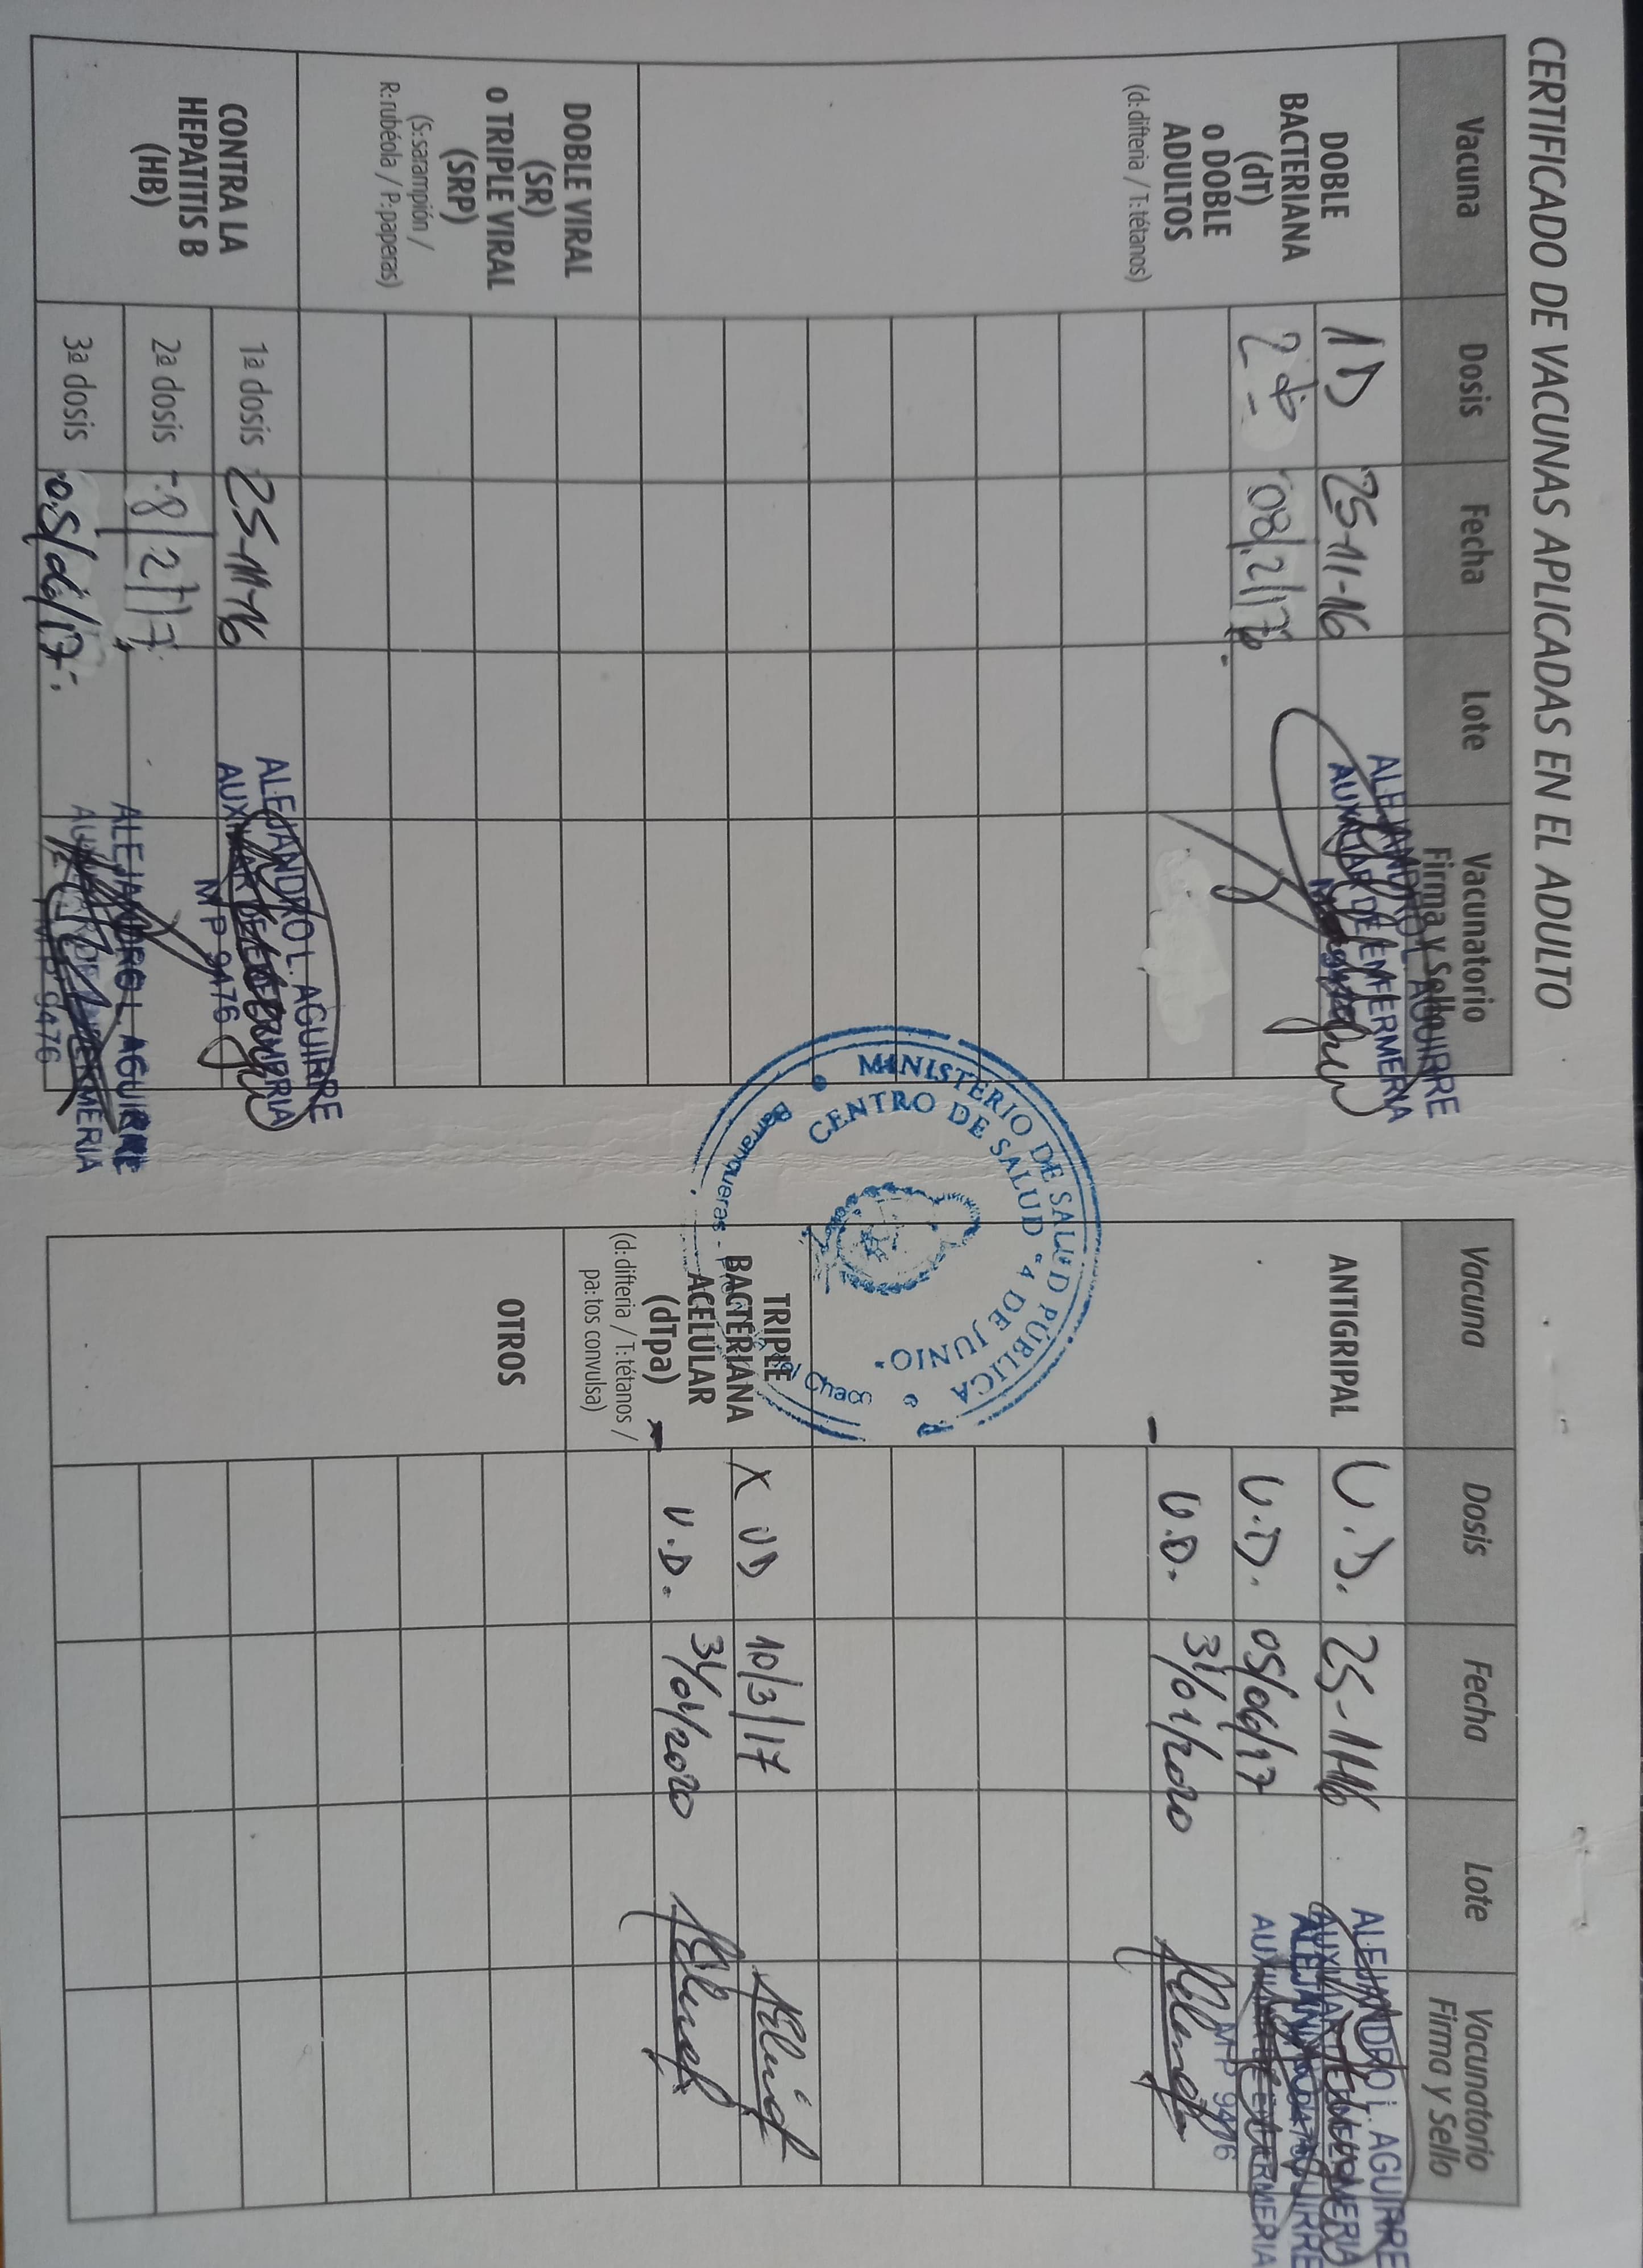 CERTIFICADO DE VACUNAS APLICADAS EN EL ADULTO
Vacuna Dosis Fecha Lote Vacunatorio
Firma y Sello
DOBLE
BACTERIANA
(dT)
o DOBLE
ADULTOS
(d: difteria / T: tétanos)
1D 25-11-16
ALEJANDRO L. AGUIRRE
AUXILIAR DE ENFERMERIA
08/2/17
DOBLE VIRAL
(SR)
o TRIPLE VIRAL
(SRP)
(S: sarampión /
R: rubéola / P: paperas)
CONTRA LA
HEPATITIS B
(HB)
1ª dosis 25-11-16
ALEJANDRO L. AGUIRRE
AUXILIAR DE ENFERMERIA
M P 9476
2ª dosis 8/2/17
3ª dosis 05/06/17
ALEJANDRO L. AGUIRRE
AUXILIAR DE ENFERMERIA
M P 9476
MINISTERIO DE SALUD PÚBLICA
CENTRO DE SALUD "4 DE JUNIO"
Barranqueras - Chaco
Vacuna Dosis Fecha Lote Vacunatorio
Firma y Sello
ANTIGRIPAL
U.D. 25-11-16
ALEJANDRO L. AGUIRRE
AUXILIAR DE ENFERMERIA
U.D. 05/06/17
ALEJANDRO L. AGUIRRE
AUXILIAR DE ENFERMERIA
M P 9476
U.D. 31/01/2020
TRIPLE
BACTERIANA
ACELULAR
(dTpa)
(d: difteria / T: tétanos /
pa: tos convulsa)
X UD 10/3/17
U.D. 31/01/2020
OTROS